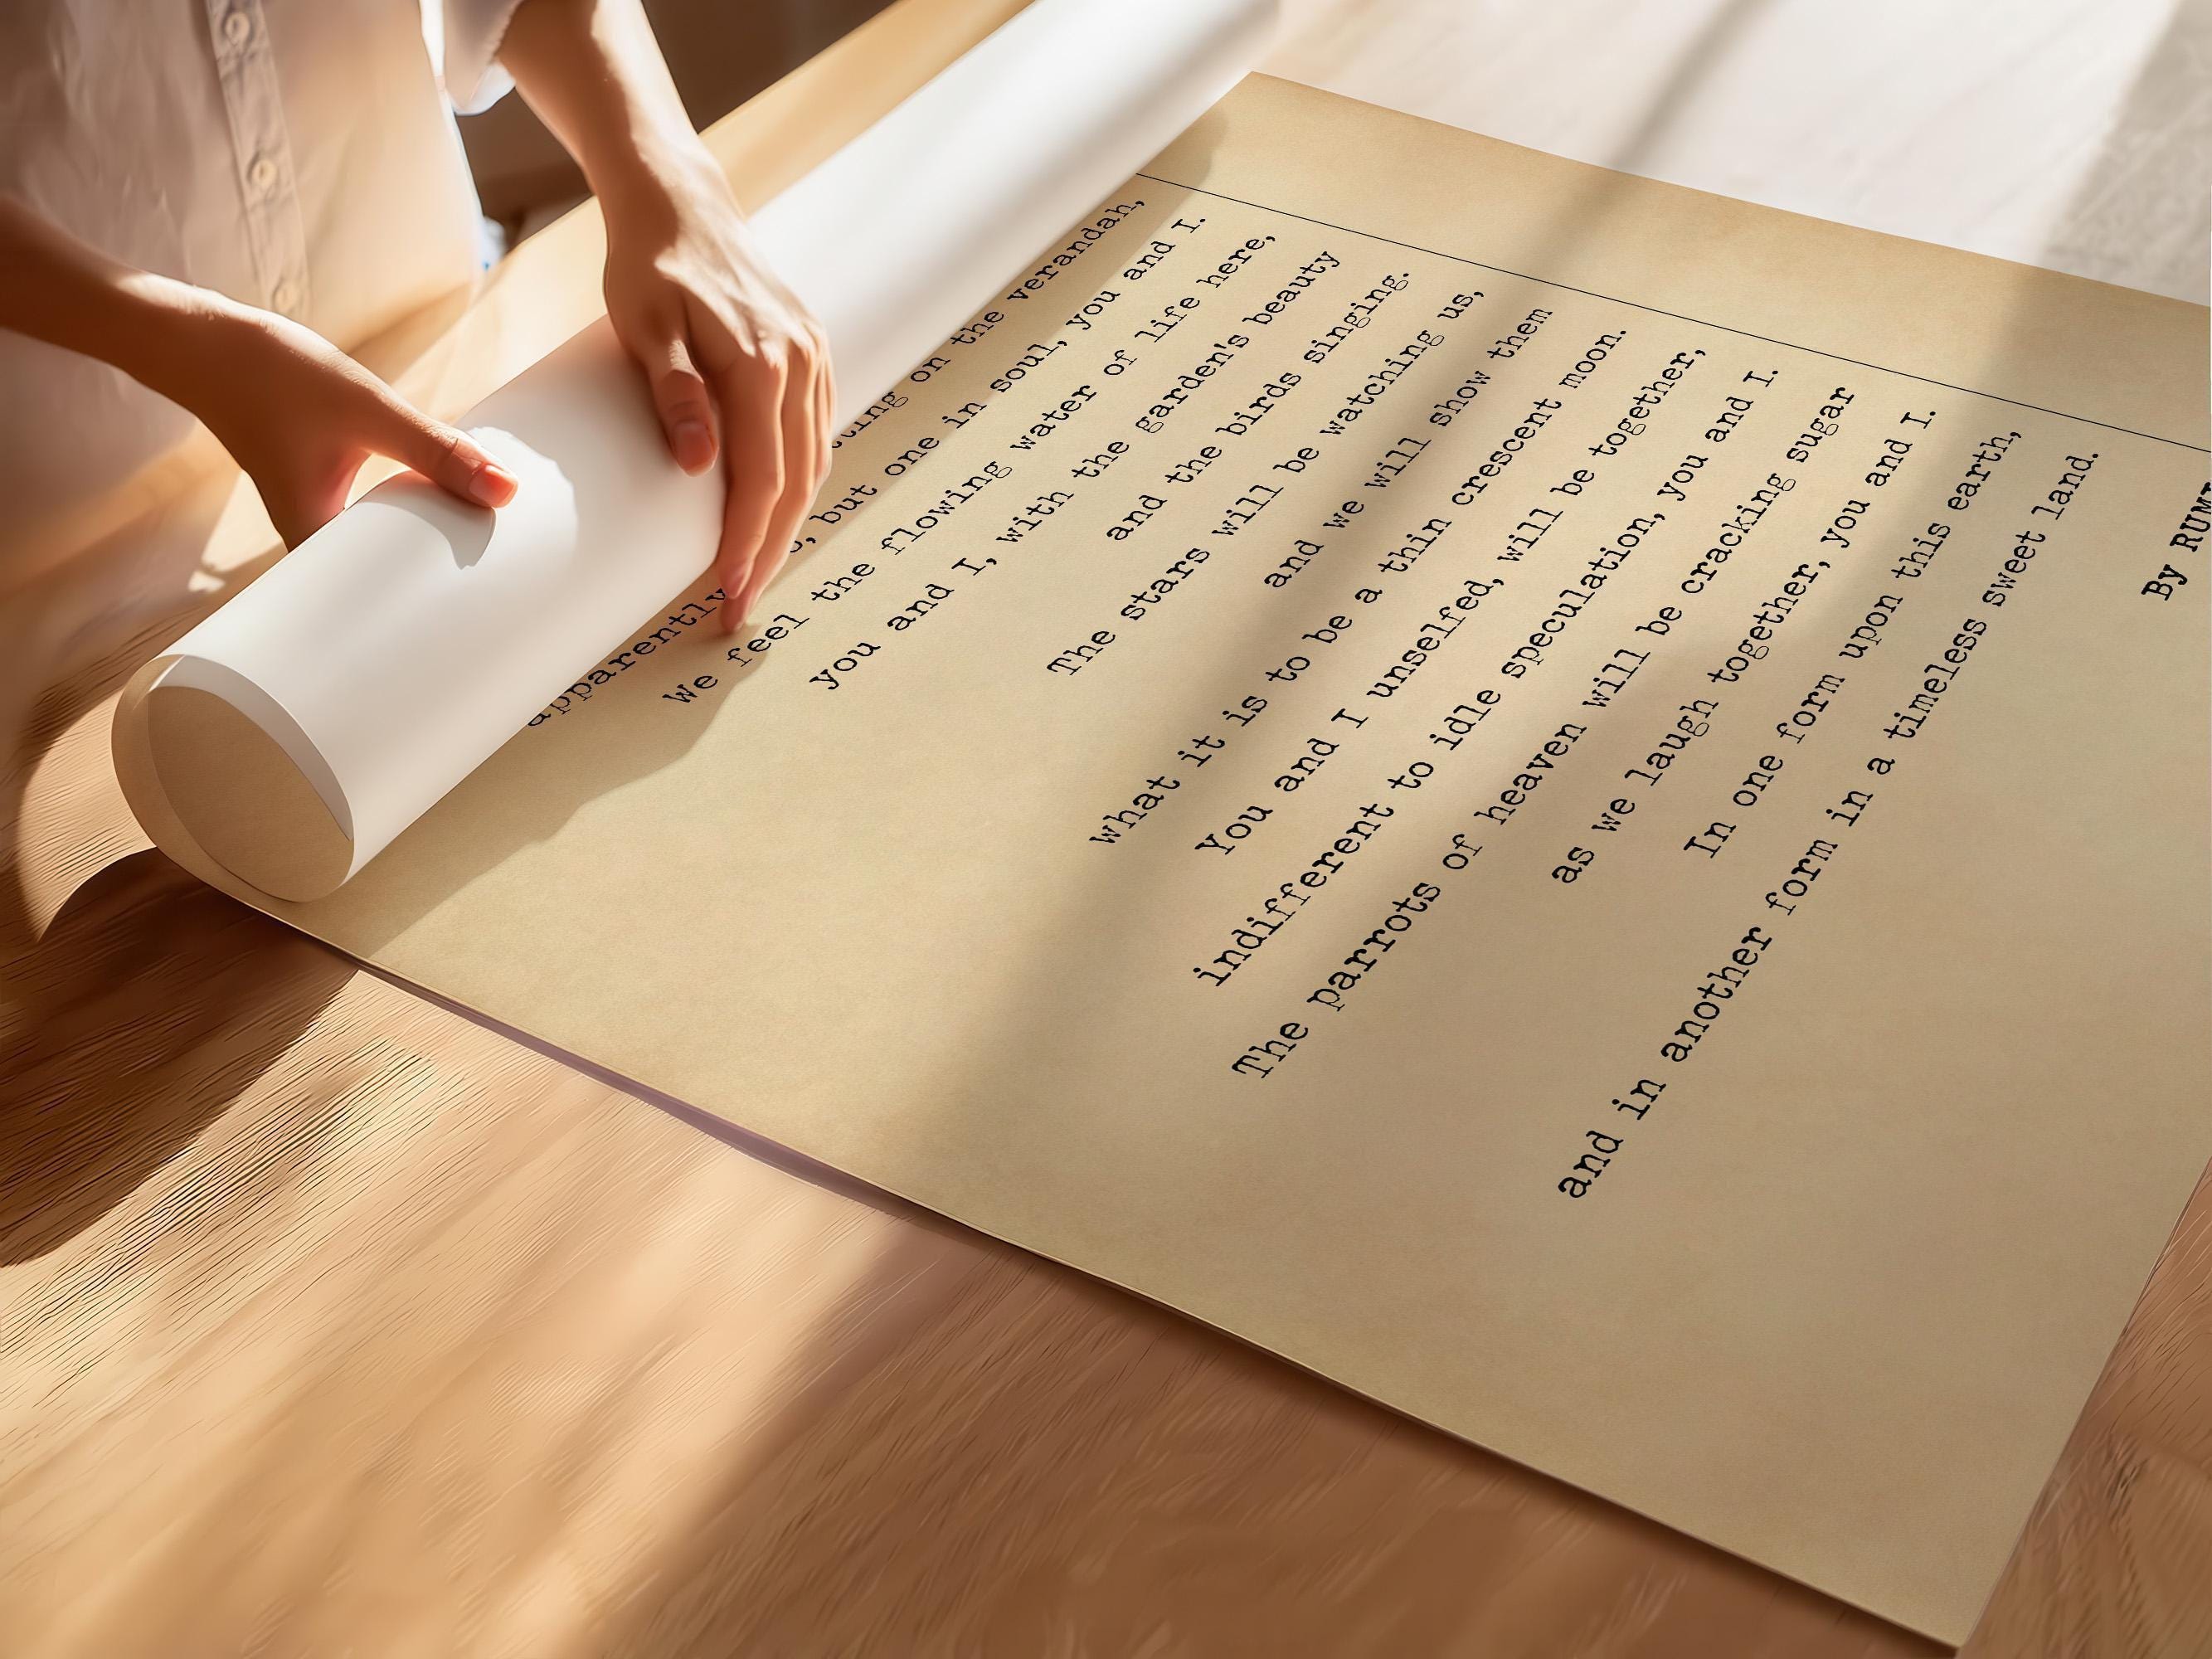 on the verandah,
apparently but one in soul, you and I.
We feel the flowing water of life here,
you and I, with the garden's beauty
and the birds singing.
The stars will be watching us,
and we will show them
what it is to be a thin crescent moon.
You and I unselfed, will be together,
indifferent to idle speculation, you and I.
The parrots of heaven will be cracking sugar
as we laugh together, you and I.
In one form upon this earth,
and in another form in a timeless sweet land.
By RUMI